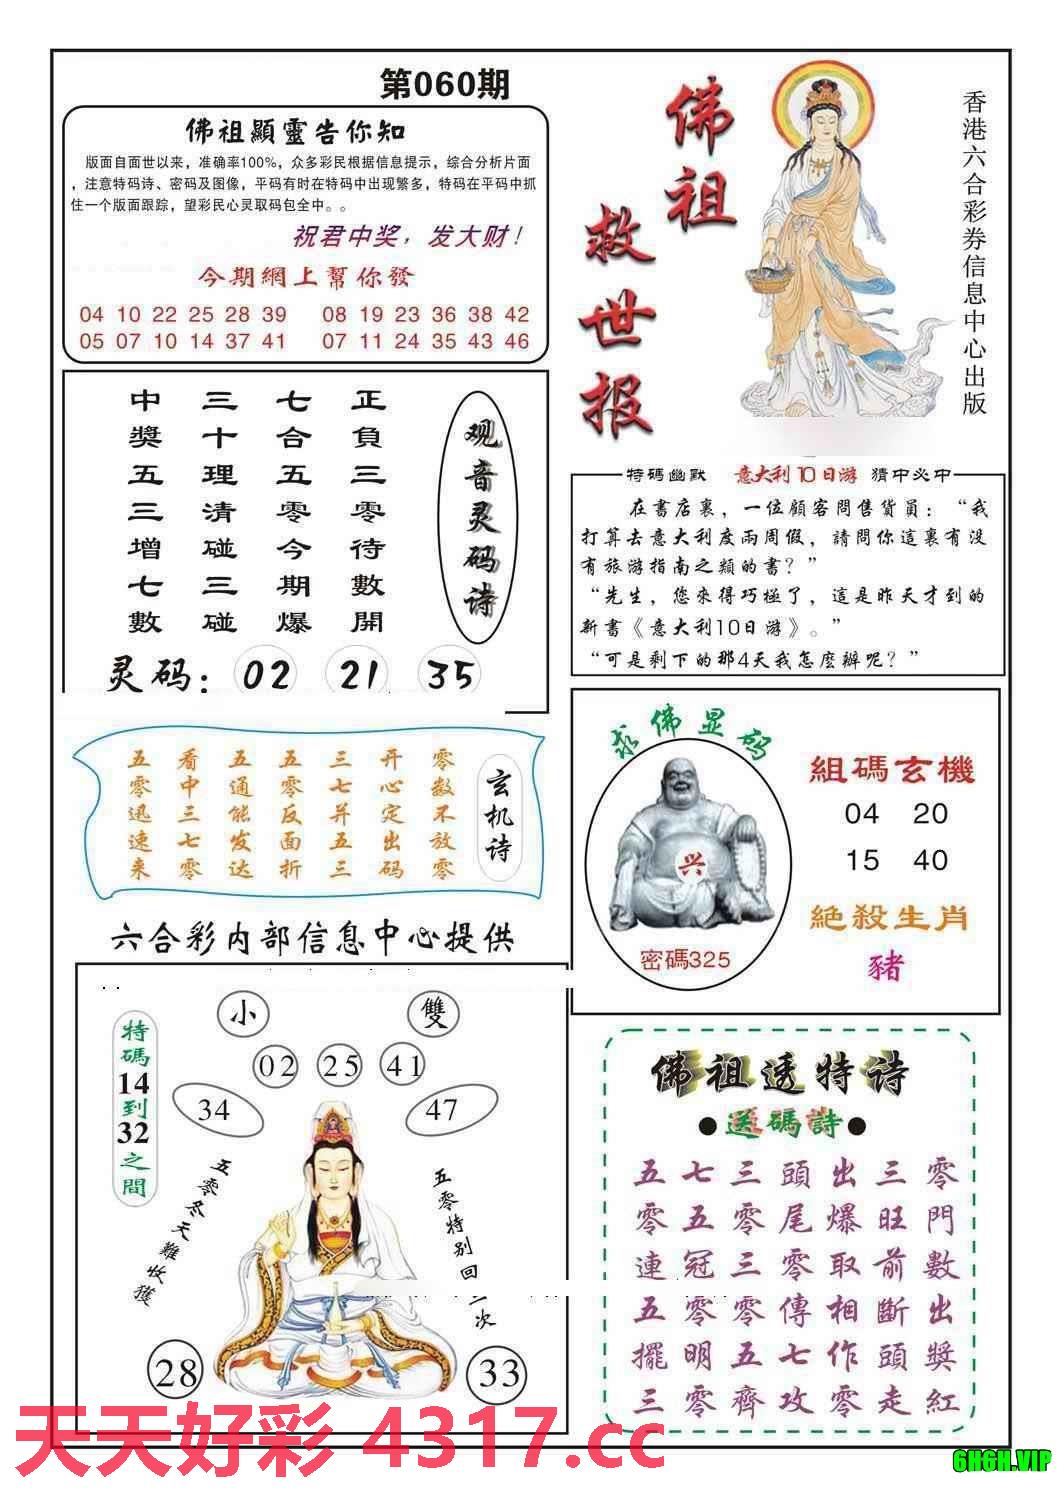 第060期
佛祖顯靈告你知
版面自面世以来，准确率100%，众多彩民根据信息提示，综合分析片面
，注意特码诗、密码及图像，平码有时在特码中出现繁多，特码在平码中抓
住一个版面跟踪，望彩民心灵取码包全中。。
祝君中奖，发大财！
今期網上幫你發
04 10 22 25 28 39 08 19 23 36 38 42
05 07 10 14 37 41 07 11 24 35 43 46
佛祖
救世报
香港六合彩券信息中心出版
观音灵码诗
正負三零待數開
七合五零今期爆
三十理清碰三碰
中獎五三增七數
灵码：02 21 35
特碼幽默 意大利10日游 猜中必中
在書店裏，一位顧客問售貨員：“我
打算去意大利度兩周假，請問你這裏有没
有旅游指南之類的書？”
“先生，您來得巧極了，這是昨天才到的
新書《意大利10日游》。”
“可是剩下的那4天我怎麽辦呢？”
玄机诗
零数不放零
开心定出码
三七并五三
五零反面折
五通能发达
看中三七零
五零迅速来
求佛显码
兴
密碼325
組碼玄機
04 20
15 40
絕殺生肖
豬
六合彩内部信息中心提供
特碼14到32之間
小 雙
02 25 41
34 47
五零冬天難收獲
五零特别回
次
28 33
佛祖透特诗
●送碼詩●
五七三頭出三零
零五零尾爆旺門
連冠三零取前數
五零零傳相斷出
擺明五七作頭獎
三零齊攻零走紅
天天好彩 4317.cc
6H6H.VIP